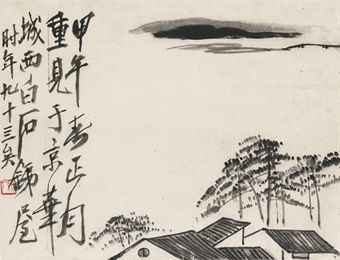 甲午春正月
重見于京華
城西白石鐵屋
時年九十三矣